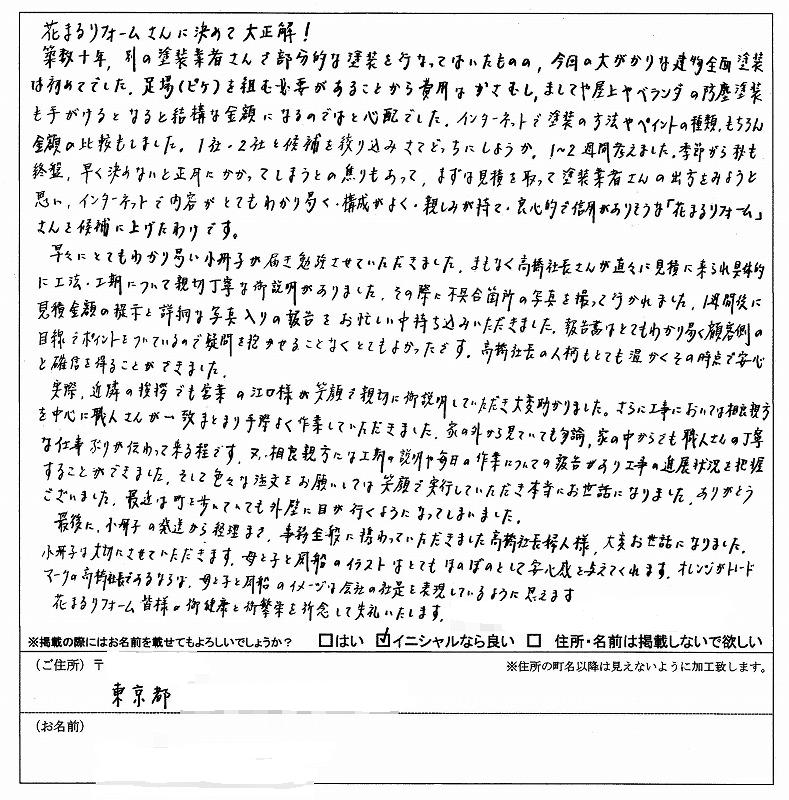 花まるリフォームさんに決めて大正解！
築数十年,別の塗装業者さんで部分的な塗装を行なってはいたものの,今回の大がかりな建物全面塗装
は初めてでした。足場(ピケ)を組む必要があることから費用はかさむし,ましてや屋上やベランダの防塵塗装
も手がけるとなると結構な金額になるのではと心配でした。インターネットで塗装の方法やペイントの種類,もちろん
金額の比較もしました。1社・2社と候補を絞り込みさてどっちにしようか。1〜2週間考えました。季節がら秋も
終盤,早く決めないと正月にかかってしまうとの焦りもあって,まずは見積を取って塗装業者さんの出方をみようと
思い,インターネットで内容がとてもわかり易く・構成がよく・親しみが持て・良心的で信用がありそうな「花まるリフォーム」
さんを候補に上げたわけです。
早々にとてもわかり易い小冊子が届き勉強させていただきました。まもなく高橋社長さんが直々に見積に来られ具体的
に工法・工期について親切丁寧な御説明がありました。その際に不具合箇所の写真を撮って行かれました。1週間後に
見積金額の提示と詳細な写真入りの報告をお忙しい中持ち込みいただきました。報告書はとてもわかり易く顧客側の
目線でポイントをついているので疑問を抱かせることなくとてもよかったです。高橋社長の人柄もとても温かくその時点で安心
と確信を得ることができました。
実際,近隣の挨拶でも営業の江口様が笑顔で親切に御説明していただき大変助かりました。さらに工事においては相良親方
を中心に職人さんが一致まとまり手際よく作業していただきました。家の外から見ていても勿論,家の中からでも職人さんの丁寧
な仕事ぶりが伝わって来る程です。又,相良親方には工期の説明や毎日の作業についての報告があり工事の進展状況を把握
することができました。そして色々な注文をお願いしては笑顔で実行していただき本当にお世話になりました。ありがとう
ございました。最近は町を歩いていても外壁に目が行くようになってしまいました。
最後に,小冊子の発送から経理まで,事務全般に携わっていただきました高橋社長婦人様,大変お世話になりました。
小冊子は大切にさせていただきます。母と子と風船のイラストはとてもほのぼのとして安心感を与えてくれます。オレンジがトレード
マークの高橋社長であるならば,母と子と風船のイメージは会社の社是を表現しているように思えます
花まるリフォーム皆様の御健康と御繁栄を祈念して失礼いたします。
※掲載の際にはお名前を載せてもよろしいでしょうか？ □はい ☑イニシャルなら良い □ 住所・名前は掲載しないで欲しい
（ご住所）〒 ※住所の町名以降は見えないように加工致します。
東京都
（お名前）